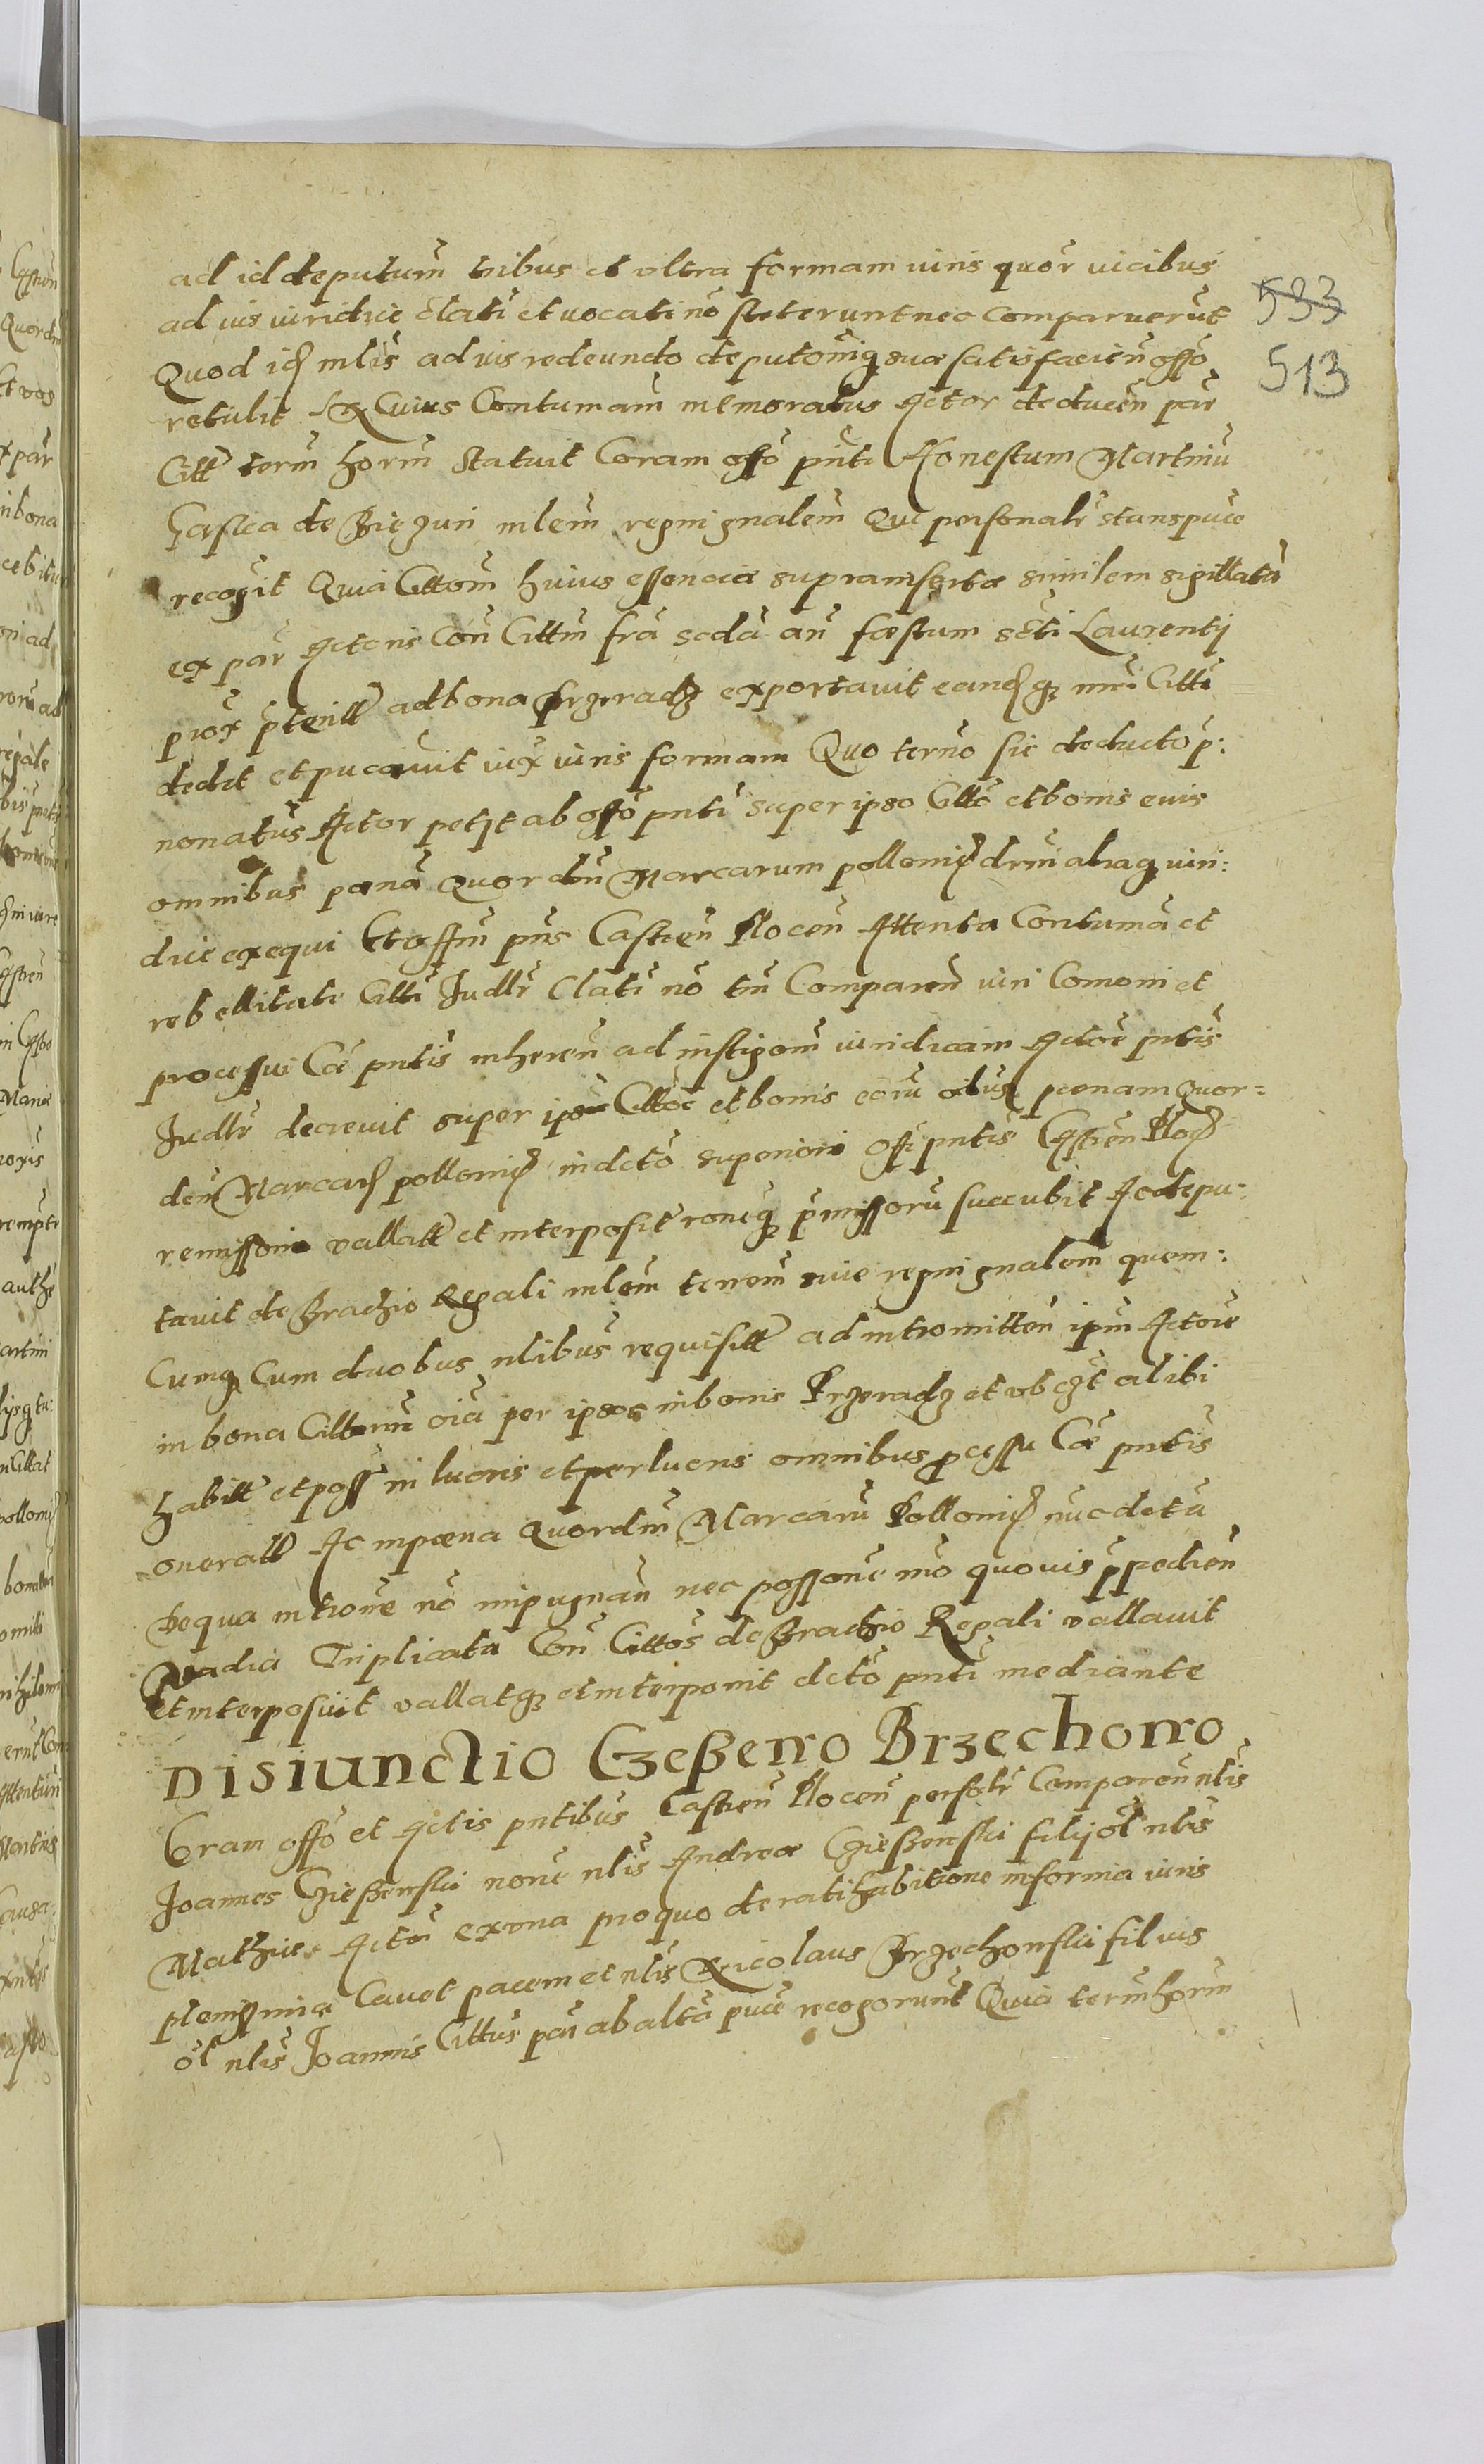 ad id deputum̄ tribus et vltra formam iuris quor̄ vicibus
ad ius iuridice Clati et vocati nō steterunt nec comparuerūt
Quod id mlis̄ ad ius redeundo deputōniq suæ satisfacien̄ offo
retulit Ex Cuius Contumam̄ memoratus Actor deducen̄ par̄
Citt term̄ horm̄ statuit Coram offō pn̄ti Honestum Martinū
Gaska de Biezun mlem̄ regni gnalem̄ Qui personalr̄ stans puce
recogit Quia Cittom̄ huius essenciæ suprainsertæ similem sigillatā
ex par̄ Actoris Con̄ Cittm̄ fra seda an̄ fæstum scti Laurentij
prox pteritt ad bona Przeradz exportavit eandq mri Citti
dedit et pucavit iux iuris formam Quo termō sic deducto p:
nonatus Actor petyt ab offō pnti super ipso Cittō et bonis euis
omnibus pœnā Quordm̄ Marcarum pollonid drm aliaq iuri:
dice exequi Et offm̄ pns̄ Castren̄ Plocen̄ Attenta Contumā et
rebellitate Citti Judlr̄ Clati nō tm̄ Comparen̄ iuri Comoni et
processui Cæ pntis̄ inheren̄ ad instigom̄ iuridicam Actor̄ pntis̄
Judlr̄ decrevit super Cittoc et bonis eorū oibus pœnam Quor=
dem̄ Marcard pollonid indctō superiori offi pntis̄ Castren̄ Plocd
remissioni vallatt et interposit roneq pmissorū succubit Ac depu=
tavit de Brachio Regali mlem̄ terrem̄ sive regni gnalem̄ quem:
Cumq Cum duobus nlibus̄ requisitt ad intromitten̄ ipm̄ Actore
in bona Cittorm̄ oiā per ipsos in bonis Przeradz et vbcqt alibi
habitt et poss in lucris et perlucris omnibus pcessu Cæ pntis̄
oneratt Ac in pæna Quordm̄ Marcarū Pollonid nuc dcta
De qua intrōne nō impugnan̄ nec possone mō quovis ppedien̄
Vadia Triplicata Con̄ Cittos̄ de Brachio Regali vallavit
Et interposuit vallatq et interponit dctō pnti mediante
Disiunctio Czeßewo Brzechowo
Coram offō et Actis pntibus Castren̄ Plocen̄ persolr̄ Comparen̄ nlis̄
Joannes Czießewski none nlis̄ Andreæ Czießewski filij ol nlis̄
Mathiæ Actor̄ ex vna pro quo de ratihabitione in forma iuris
plenissima Cavet pacem et nlis̄ Nicolaus Brzechowski filius
ol nlis̄ Joannis Cittus par̄ ab alta puce recogorunt Quia term̄ horm̄
533
513